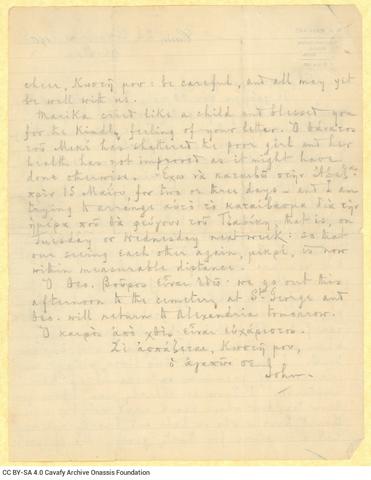 cheer, Κωστή μου: be careful, and all may yet
be well with us.
Marika cried like a child and blessed you
for the kindly feeling of your letter. Ὁ θάνατος
τοῦ Μικέ has shattered the poor girl and her
health has not improved as it might have
done otherwise. Ἔχω νὰ καταιβῶ στὴν
πρὶν 15 Μαΐου, for two or three days — and I am
trying to arrange αὐτὸ τὸ καταίβασμα διὰ τὴν
ἡμέρα ποῦ θὰ φεύγουν τοῦ that is, on
Tuesday or Wednesday next week: so that
our seeing each other again, μικρέ, is now
within measurable distance.
Ὁ Θεο. Βοῦρος εἶναι ἐδῶ: we go out this
afternoon to the cemetery at St. George and
Θεο. will return to Alexandria tomorrow.
Ὁ καιρὸς ἀπὸ χθὲς εἶναι εὐχάριστος.
Σὲ ἀσπάζεται, Κωστή μου,
ὁ ἀγαπῶν σε
John.
CC BY-SA 4.0 Cavafy Archive Onassis Foundation